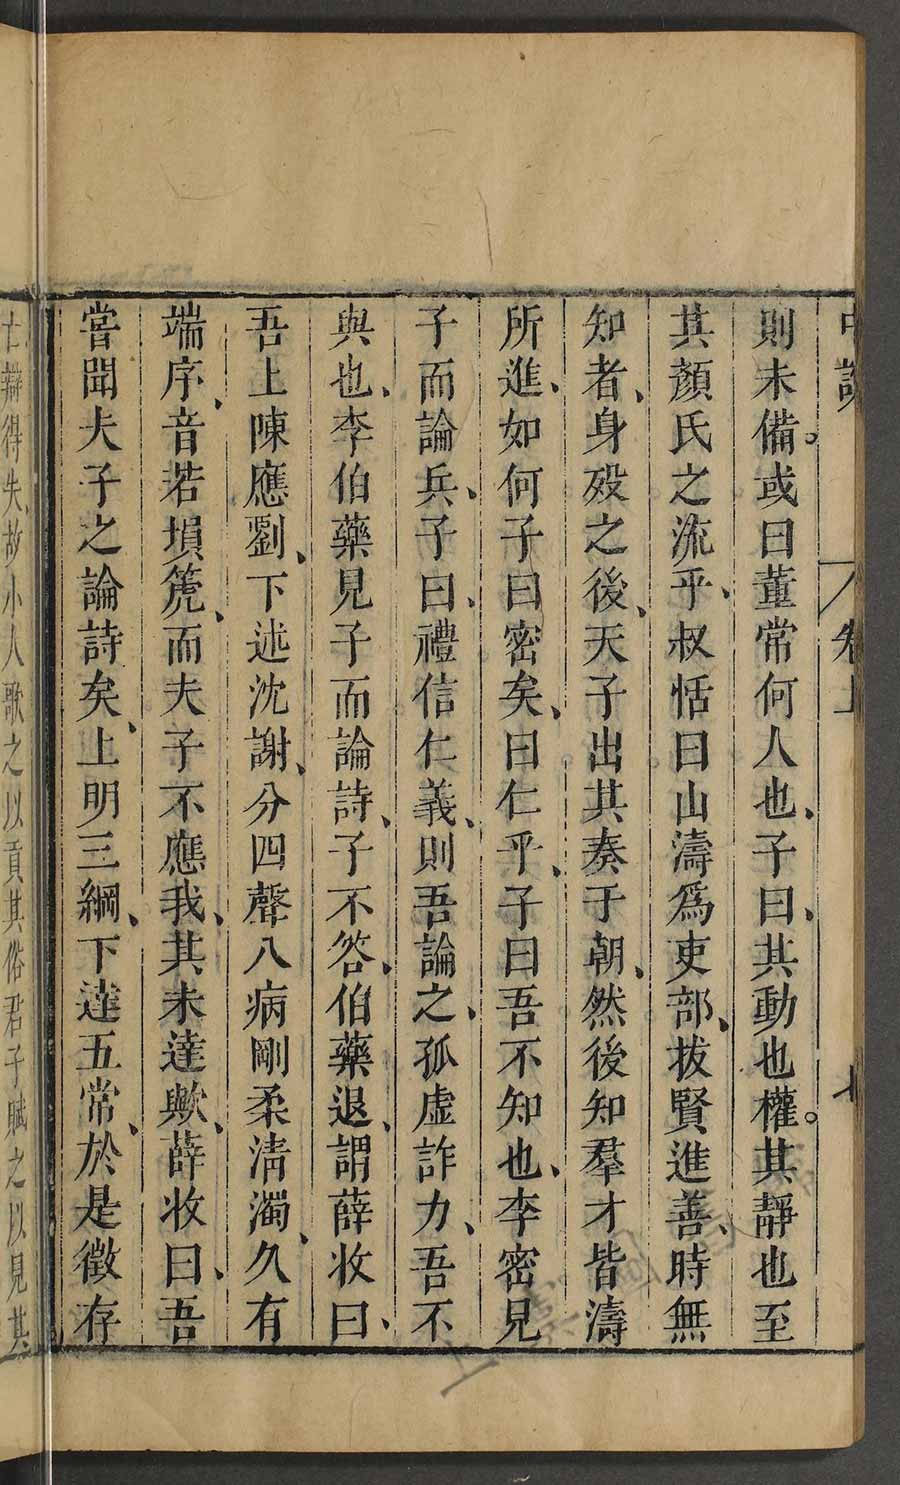 中說 卷上 七
則未備。或曰董常何人也、子曰、其動也權。其靜也至
其顏氏之流乎、叔恬曰山濤爲吏部、拔賢進善、時無
知者、身歿之後、天子出其奏于朝、然後知羣才皆濤
所進、如何子曰密矣、曰仁乎、子曰吾不知也、李密見
子而論兵、子曰、禮信仁義、則吾論之、孤虛詐力、吾不
與也、李伯藥見子而論詩、子不答、伯藥退、謂薛收曰、
吾上陳應劉、下述沈謝、分四聲八病剛柔清濁、久有
端序、音若塤箎、而夫子不應我、其未達歟、薛收曰、吾
嘗聞夫子之論詩矣、上明三綱、下達五常、於是徵存
亡辯得失、故小人歌之以貢其俗君子賦之以見其